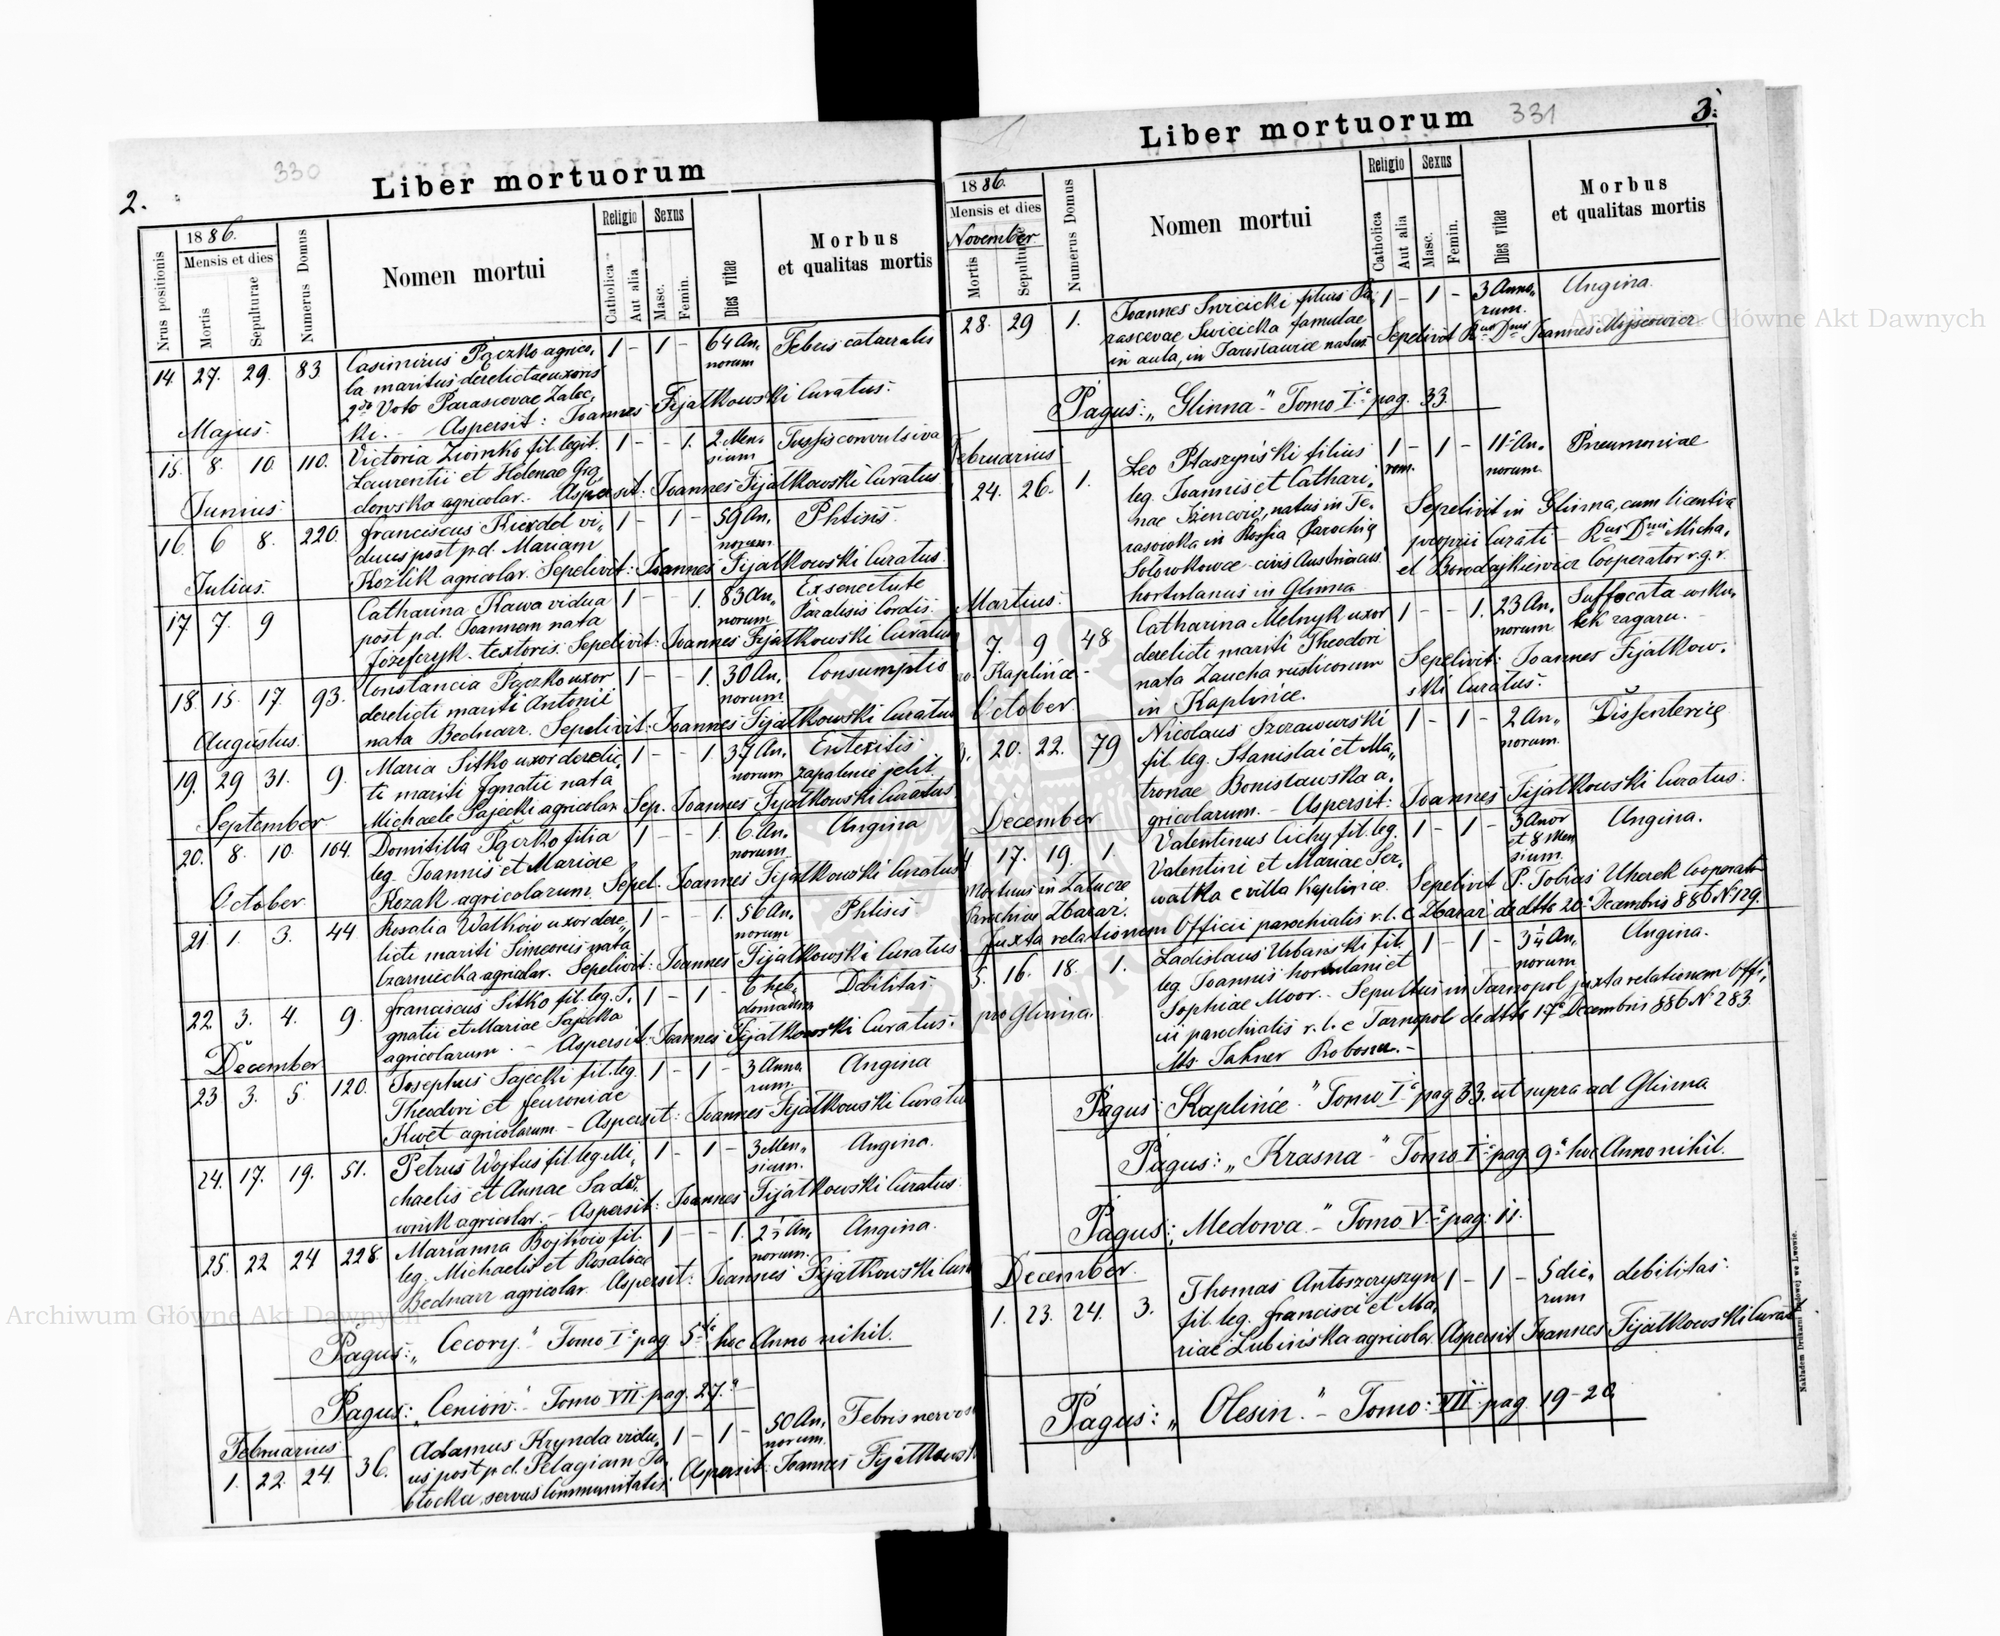 330
2.
Liber mortuorum
Nrus positionis
1886.
Mensis et dies
Mortis
Sepulturae
Numerus Domus
Nomen mortui
Religio
Catholica
Aut alia
Sexus
Masc.
Femin.
Dies vitae
Morbus
et qualitas mortis
14. 27. 29. 83 Casimirus Pączko agrico, 1 - 1 - 64 An, Febris catarralis
la maritus derelictae uxoris norum
2do Voto Parascevae Zaloc,
ki. - Aspersit: Joannes Fijałkowski Curatus.
Majus.
15. 8. 10. 110. Victoria Zwinko fil. legit. 1 - - 1. 2 Men, Tussis convulsiva
Laurentii et Helenae sium
dowska agricolar. - Aspersit: Joannes Fijałkowski Curatus
Junius.
16. 6 8. 220. Franciscus vi, 1 - 1 - 59 An, Phtisis.
duus post p.d. Mariam norum
Kozlik agricolar. Sepelivit: Joannes Fijałkowski Curatus.
Julius.
17. 7. 9 Catharina Kawa vidua 1 - - 1. 83 An, Ex senectute
post p.d. Joannem nata norum Paralisis Cordis.
Józefczyk - textoris. Sepelivit: Joannes Fijałkowski Curatus
18. 15. 17. 93. Constancia Pączko uxor 1 - - 1. 30 An, Consumptis
derelicti mariti Antonii norum
nata Bednarz. Sepelivit: Joannes Fijałkowski Curatus
Augustus.
19. 29 31. 9. Maria Sitko uxor derelic, 1 - - 1 37 An, Enteritis
ti mariti Ignatii nata norum zapalenie jelit.
Michaele Sajecki agricolar. Sep. Joannes Fijałkowski Curatus.
September
20. 8. 10. 104. Domitilla Pączko filia 1 - - 1. 6 An, Angina
leg. Joannis et Mariae norum
Kozak agricolarum. Sepel. Joannes Fijałkowski Curatus
October.
21 1. 3. 44. Rosalia Watkow uxor dere, 1 - - 1. 56 An, Phtisis
licti mariti Simeonis nata norum
Czarniecka agricolar. Sepelivit: Joannes Fijałkowski Curatus
22. 3. 4. 9. Franciscus Sitko fil. leg. I, 1 - 1 - 6 heb, Debilitas.
gnatii et Mariae Sajecka domadum
agricolarum. - Aspersit: Joannes Fijałkowski Curatus.
December
23 3. 5. 120. Josephus Sajecki fil. leg. 1 - 1 - 3 Anno, Angina
Theodori et Feuroniae rum.
Kwet agricolarum - Aspersit: Joannes Fijałkowski Curatus
24. 17. 19. 51. Petrus Wojtus fil. leg. Mi, 1 - 1 - 3 Men, Angina.
chaelis et Annae Sado, sium.
wnik agricolar. - Aspersit: Joannes Fijałkowski Curatus.
25. 22 24 228. Marianna Bojkow fil. 1 - - 1. 2½ An, Angina.
leg. Michaelis et Rosaliae norum.
Bednarz agricolar. Aspersit: Joannes Fijałkowski Cura
Pagus: „Cecory." Tomo I. pag. 5ta hoc Anno nihil.
Pagus: „Ceniow." - Tomo VII. pag. 27.a
Februarius
1. 22. 24. 36. Adamus Krynda vidu, 1 - 1 - 50 An, Febris nervosa
us post p.d. Pelagiam Ja, norum.
błocka, servus Communitatis Aspersit: Joannes Fijałkowski
331
3.
Liber mortuorum
1886.
Mensis et dies
November
Mortis
Sepulturae
Numerus Domus
Nomen mortui
Religio
Catholica
Aut alia
Sexus
Masc.
Femin.
Dies vitae
Morbus
et qualitas mortis
28. 29 1. Joannes Swicicki filius Pa, 1 - 1 - 3 Anno, Angina.
rascevae Swicicka famulae rum.
in aula, in Jarosławice natus Sepelivit Rdus Dnus Joannes Mojsewicz
Pagus: „Glinna" Tomo I. pag. 33.
Februarius
24. 26. 1. Leo Ptaszyński filius 1 - 1 - 11 An, Pneumoniae
leg. Joannis et Cathari, rom. norum.
nae natus in Te, Sepelivit in Glinna, cum licentia
rasowka in Rossia Parochia proprii Curati - Rdus Dnus Micha,
Sołowkowce - civis Austriacus el Borodajkiewicz Cooperator r. g. r.
hortulanus in Glinna.
Martius.
7. 9 48 Catharina Melnyk uxor 1 - - 1. 23 An, Suffocata wsku,
derelicti mariti Theodori norum. tek zagaru. -
nata Zaucha rusticorum Sepelivit: Joannes Fijałkow,
pro Kaplince - in Kaplince. ski Curatus.
October
20. 22. 79 Nicolaus Szczawurski 1 - 1 - 2 An, Dissenteria
fil. leg. Stanislai et Ma, norum.
tronae Bonisławska a,
gricolarum. - Aspersit: Joannes Fijałkowski Curatus.
December
4 17. 19. 1. Valentinus Cichy fil. leg. 1 - 1 - 3 Anor Angina.
Valentini et Mariae Ser, et 8 Men
Mortuus in Załucze watka e villa Kaplince. sium. Sepelivit P. Tobias Uherek Cooperator
Parochiae Zbaraż. Juxta relationem Officii parochialis r. l. e Zbaraż de dtto 20. Decembris 886 N 129.
5. 16. 18. 1. Ladislaus Urbański fil. 1 - 1 - 3¼ An, Angina.
leg. Joannis hortulani et norum
pro Glinna. Sophiae Moor. - Sepultus in Tarnopol juxta relationem Offi,
cii parochialis r. l. e Tarnopol de dtto 17a Decembris 886 N 283.
Pagus: Kaplince." Tomo I. pag 33. ut supra ad Glinna
Pagus: „Krasna" Tomo I. pag 9a hoc Anno nihil.
Pagus: „Medowa" - Tomo V. pag: 11.
December.
1. 23. 24. 3. Thomas Antoszczyszyn 1 - 1 - 5 die, debilitas.
fil. leg. Francisci et Ma, rum
riae Lubińska agricolar. Aspersit Joannes Fijałkowski Curat
Pagus: „Olesin." - Tomo: VII. pag. 19-20
Nakładem Drukarni Ludowej we Lwowie.
Archiwum Główne Akt Dawnych
Archiwum Główne Akt Dawnych